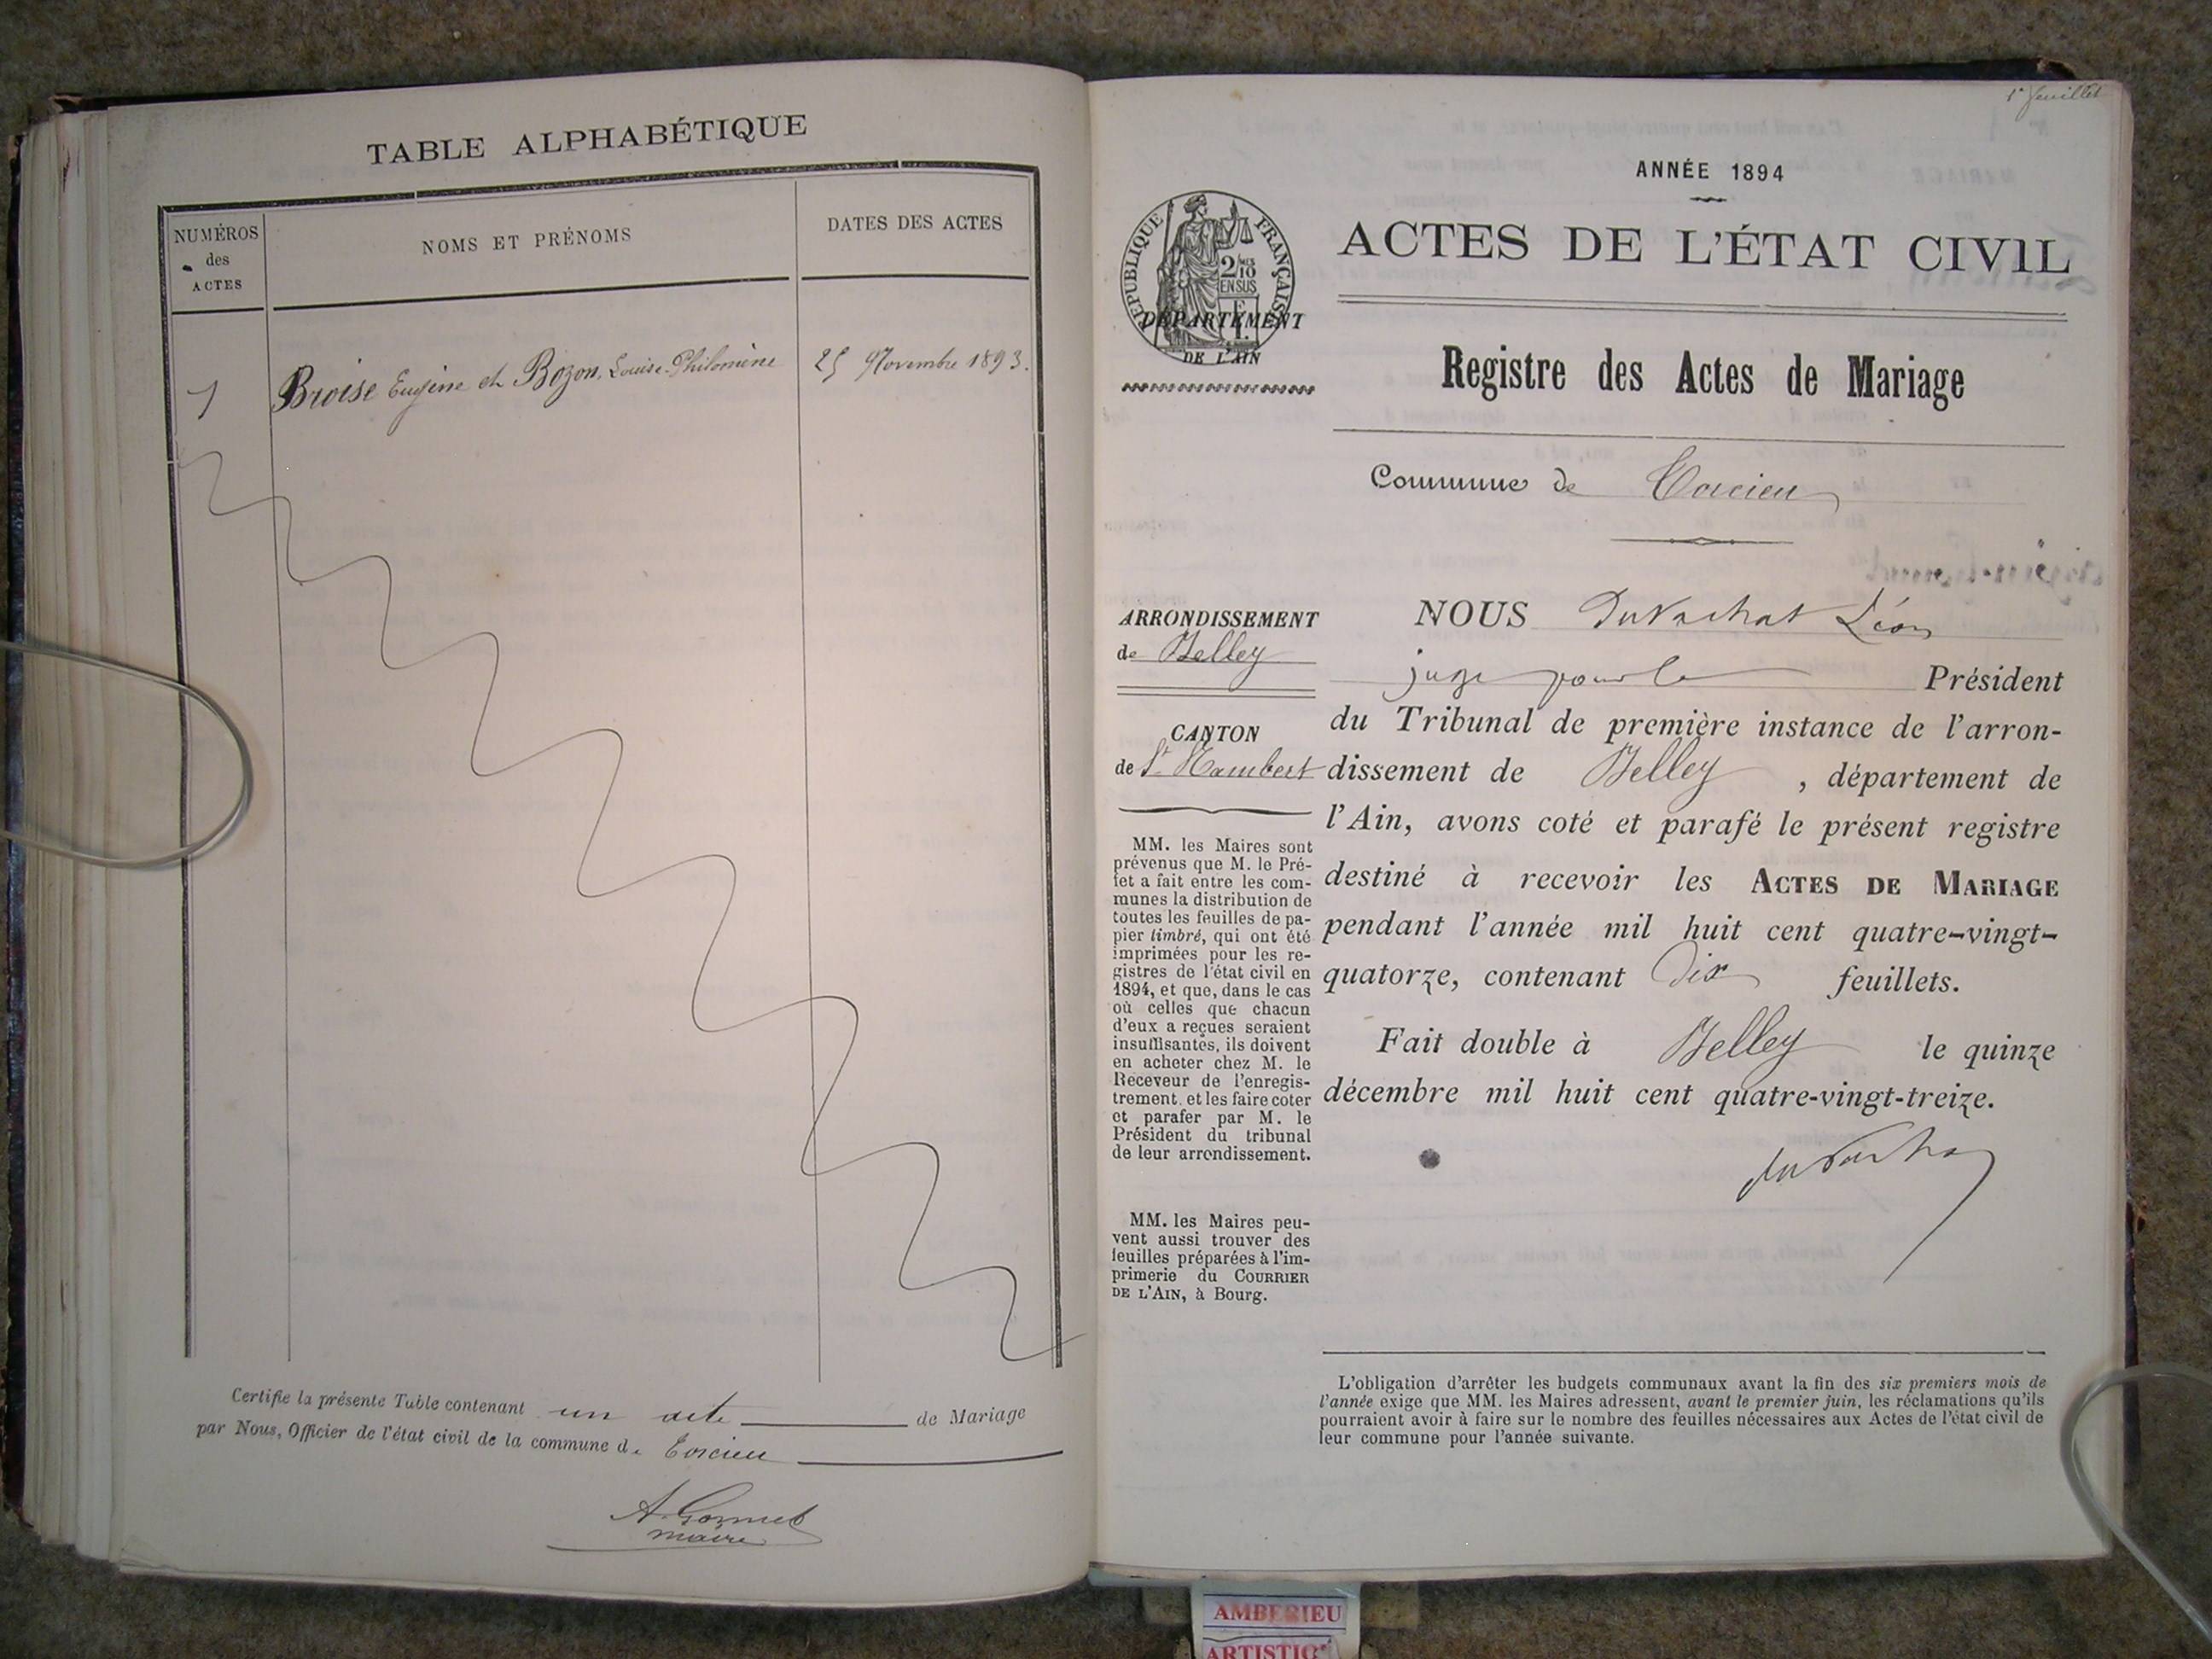 TABLE ALPHABÉTIQUE
NUMÉROS
des
ACTES
NOMS ET PRÉNOMS
DATES DES ACTES
1
Broise Eugène et Bozon, Louise-Philomène
25 Novembre 1893.
Certifie la présente Table contenant un acte de Mariage
par Nous, Officier de l'état civil de la commune de Torcieu
A. Gonnet
maire
1er feuillet
ANNÉE 1894
ACTES DE L'ÉTAT CIVIL
RÉPUBLIQUE FRANÇAISE
2/10
EN SUS
DÉPARTEMENT
DE L'AIN
Registre des Actes de Mariage
Commune de Torcieu
ARRONDISSEMENT
de Belley
CANTON
de St Rambert
MM. les Maires sont
prévenus que M. le Pré-
fet a fait entre les com-
munes la distribution de
toutes les feuilles de pa-
pier timbré, qui ont été
imprimées pour les re-
gistres de l'état civil en
1894, et que, dans le cas
où celles que chacun
d'eux a reçues seraient
insuffisantes, ils doivent
en acheter chez M. le
Receveur de l'enregis-
trement, et les faire coter
et parafer par M. le
Président du tribunal
de leur arrondissement.
MM. les Maires peu-
vent aussi trouver des
feuilles préparées à l'im-
primerie du COURRIER
DE L'AIN, à Bourg.
NOUS Duvachat Léon
juge pour le Président
du Tribunal de première instance de l'arron-
dissement de Belley, département de
l'Ain, avons coté et parafé le présent registre
destiné à recevoir les ACTES DE MARIAGE
pendant l'année mil huit cent quatre-vingt-
quatorze, contenant Dix feuillets.
Fait double à Belley le quinze
décembre mil huit cent quatre-vingt-treize.
Duvachat
L'obligation d'arrêter les budgets communaux avant la fin des six premiers mois de
l'année exige que MM. les Maires adressent, avant le premier juin, les réclamations qu'ils
pourraient avoir à faire sur le nombre des feuilles nécessaires aux Actes de l'état civil de
leur commune pour l'année suivante.
AMBERIEU
ARTISTIQ